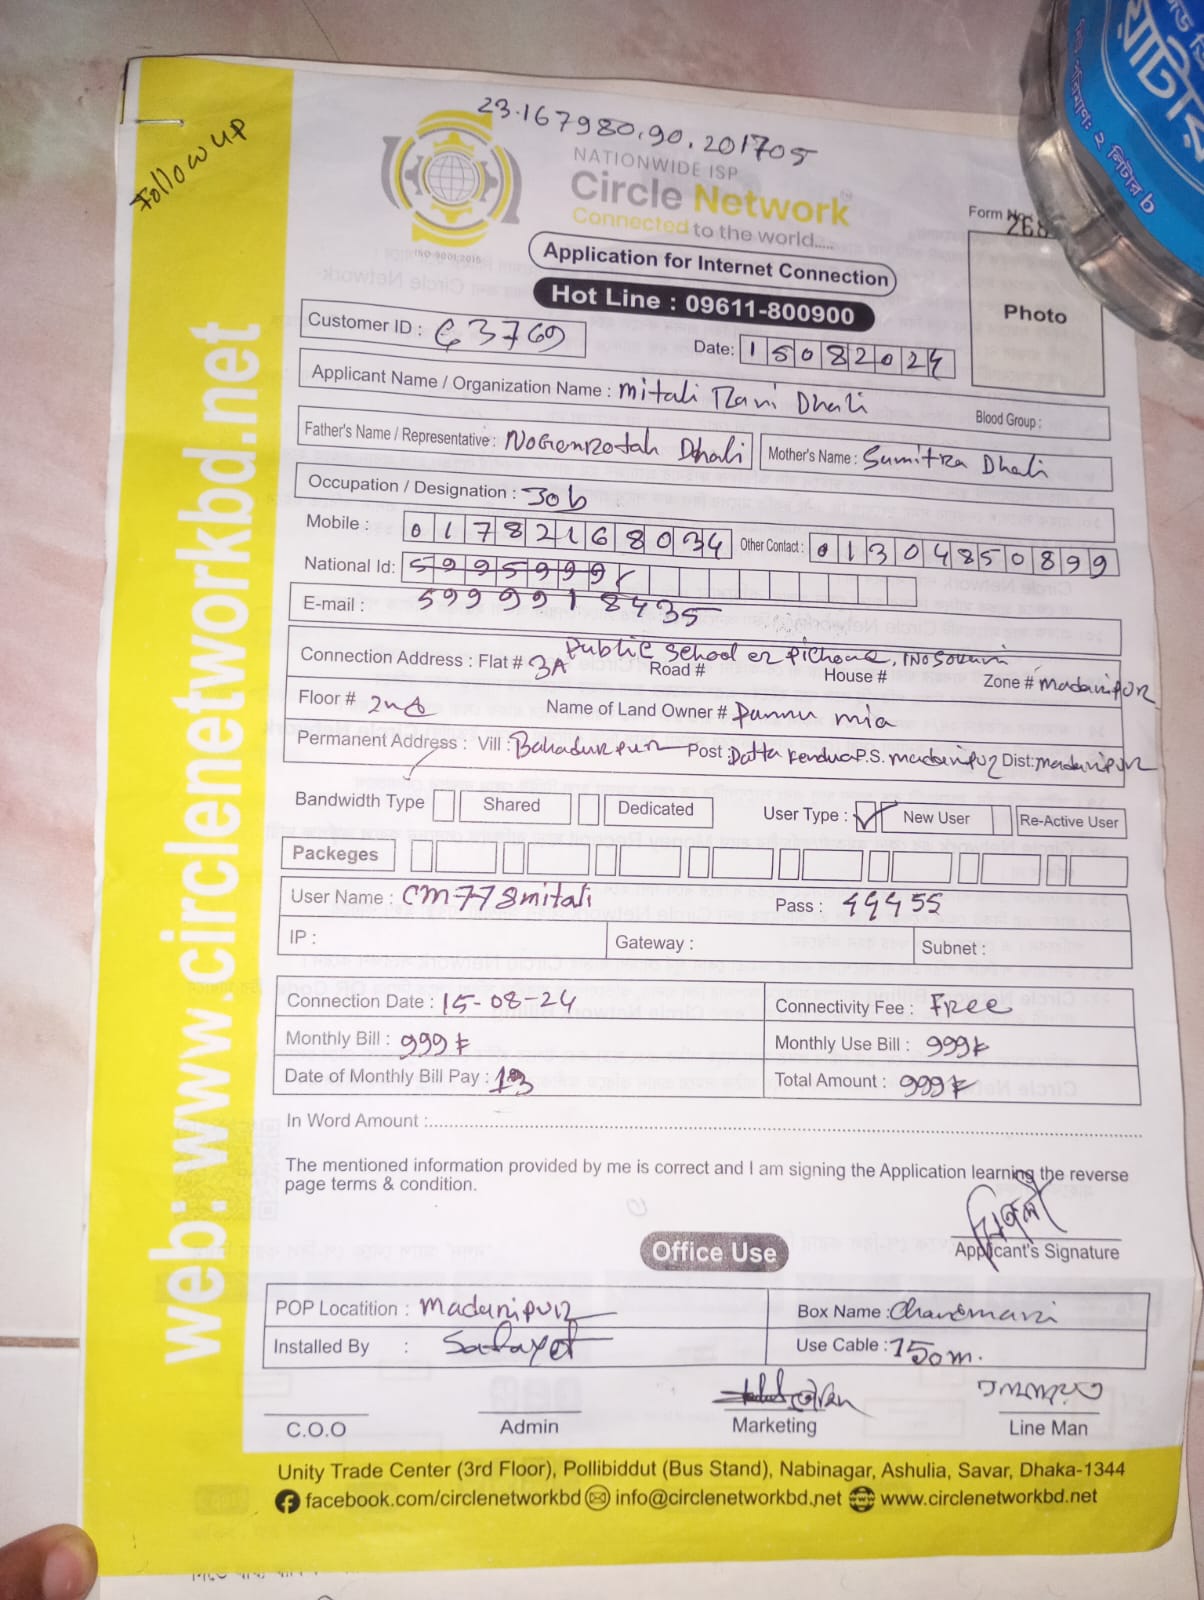 23.167980,90.201705
Follow up
NATIONWIDE ISP
Circle Network
Connected to the world.....
ISO 9001:2015
Form No. 268
Application for Internet Connection
Hot Line : 09611-800900
Photo
Customer ID :
Date: 15082024
Applicant Name / Organization Name : Mitali Rani Dhali
Blood Group :
Father's Name / Representative : Dhali
Mother's Name : Sumitra Dhali
Occupation / Designation : Job
Mobile : 01782168034
Other Contact : 01304850899
National Id: 59959991
E-mail :
5999918435
Public School er Pichone,
Connection Address : Flat # 3A Road # House # Zone # madaripur
Floor # 2nd Name of Land Owner # Pannu mia
Permanent Address : Vill : Bahadurpur Post : Datta Kendua P.S. madaripur Dist: madaripur
Bandwidth Type Shared Dedicated User Type : ✓ New User Re-Active User
Packeges
User Name : CM778mitali Pass : 44455
IP : Gateway : Subnet :
Connection Date : 15-08-24 Connectivity Fee : Free
Monthly Bill : 999৳ Monthly Use Bill : 999৳
Date of Monthly Bill Pay : Total Amount : 999৳
In Word Amount :
The mentioned information provided by me is correct and I am signing the Application learning the reverse
page terms & condition.
মিতালী
Applicant's Signature
Office Use
POP Locatition : Madaripur Box Name :
Installed By : Safayet Use Cable : 150m.
C.O.O Admin Marketing Line Man
Unity Trade Center (3rd Floor), Pollibiddut (Bus Stand), Nabinagar, Ashulia, Savar, Dhaka-1344
facebook.com/circlenetworkbd info@circlenetworkbd.net www.circlenetworkbd.net
web: www.circlenetworkbd.net
২ লিটার